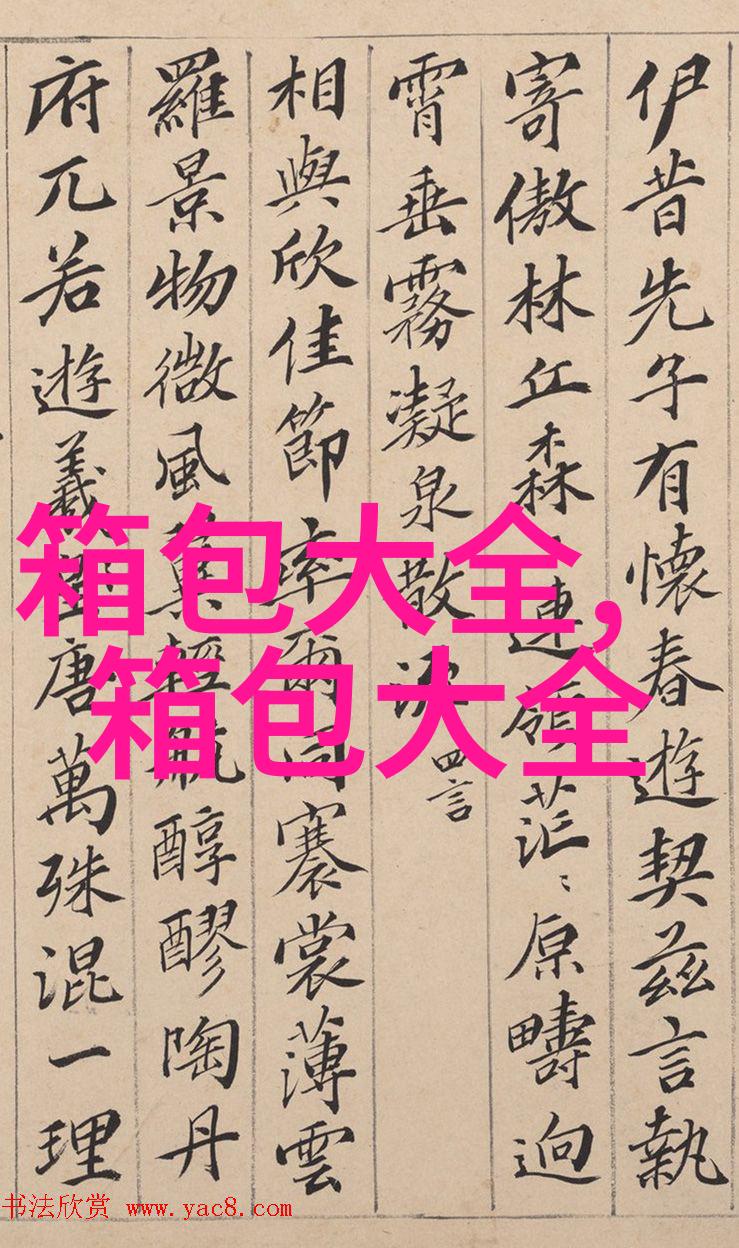 伊昔先子有懷春遊契茲言執
寄傲林丘森連嶺茫〻原疇逈
霄垂霧凝泉散
四言
相與欣佳節率爾同褰裳薄雲
羅景物微風翼輕航醇醪陶丹
府兀若遊羲唐萬殊混一理
箱包大全,
箱包大全
书法欣赏 www.yac8.com